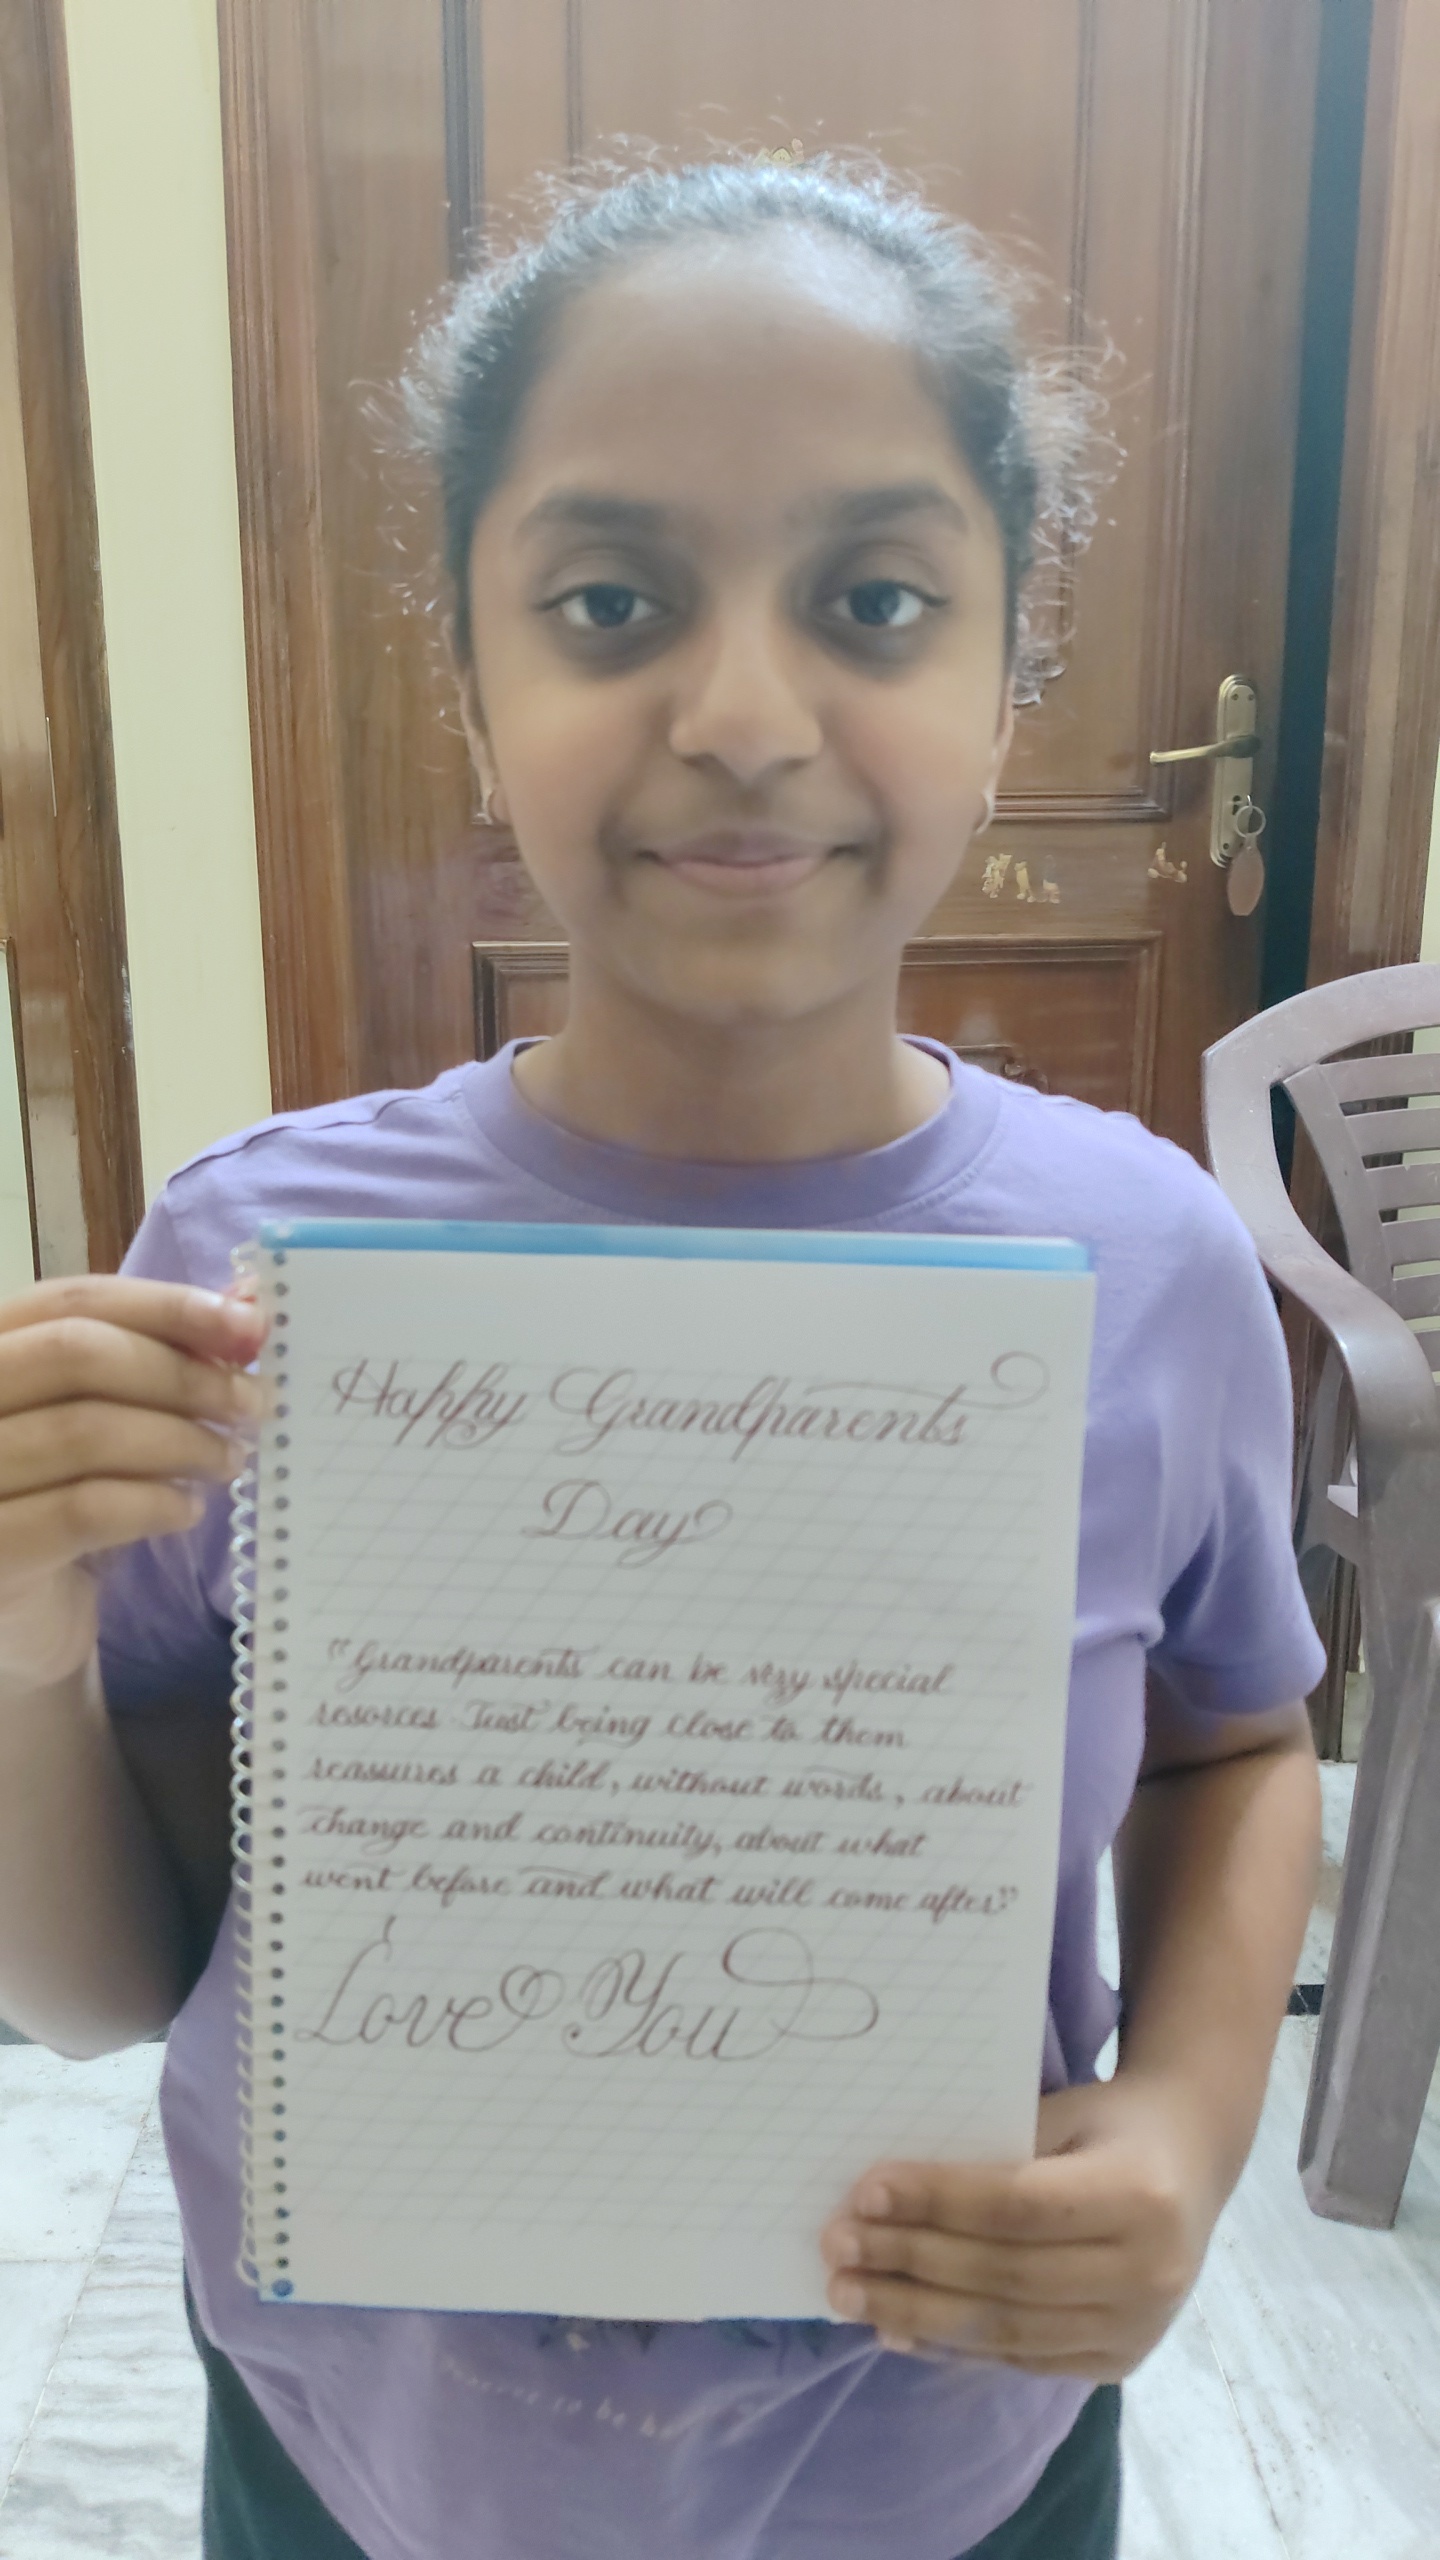 Happy Grandparents
Day
"Grandparents can be very special
resorces Just being close to them
reassures a child, without words, about
change and continuity, about what
went before and what will come after"
Love You
to be